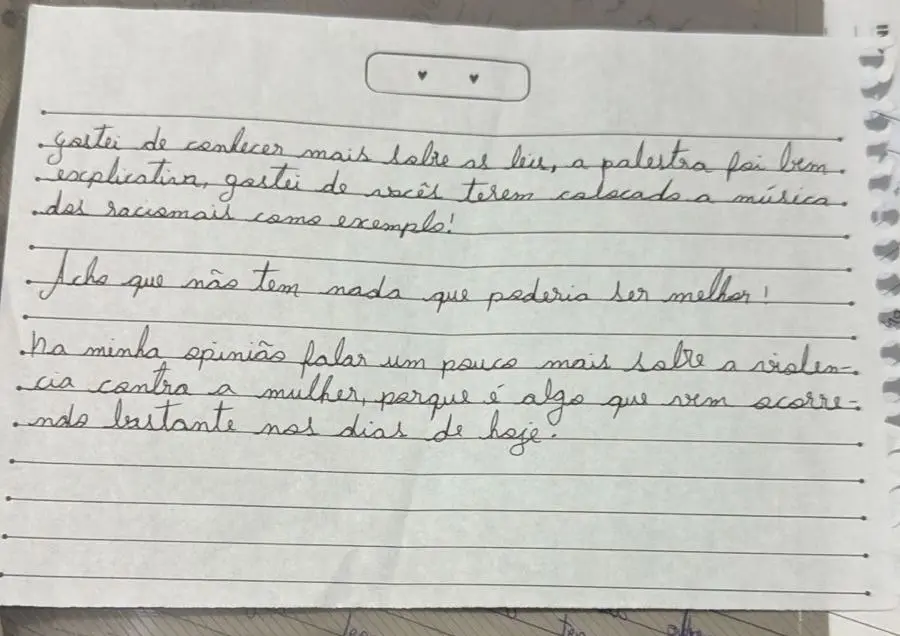 gostei de conhecer mais sobre as leis, a palestra foi bem
explicativa, gostei de vocês terem colocado a música
dos racionais como exemplo!
Acho que não tem nada que poderia ser melhor!
na minha opinião falar um pouco mais sobre a violen-
cia contra a mulher, porque é algo que vem ocorre-
ndo bastante nos dias de hoje.